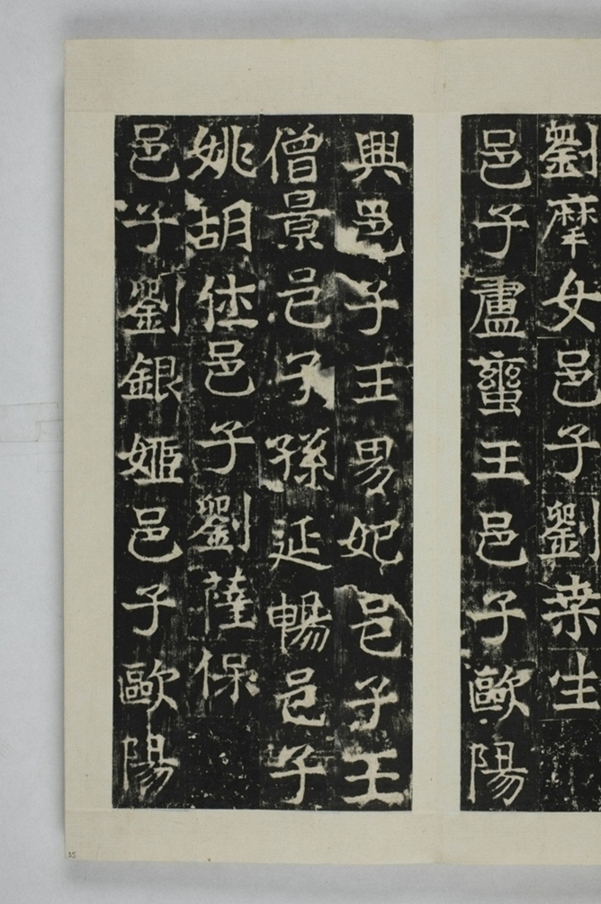 劉摩女邑子劉桒生
邑子盧蠻王邑子歐陽
興邑子王男妃邑子王
僧景邑子孫延暢邑子
姚胡仕邑子劉薩保
邑子劉銀姬邑子歐陽
35